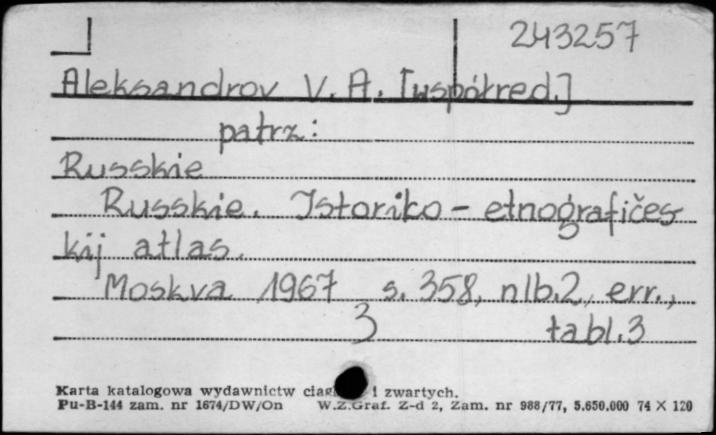 243257
Aleksandrov V. A. [współred.]
patrz:
Russkie
Russkie. Istoriko - etnografičes
kij atlas.
Moskva 1967 s. 358, nlb. 2, err.,
3 tabl. 3
Karta katalogowa wydawnictw i zwartych.
Pu-B-144 zam. nr 1674/DW/On W.Z.Graf. Z-d 2, Zam. nr 988/77, 5.650.000 74 X 120